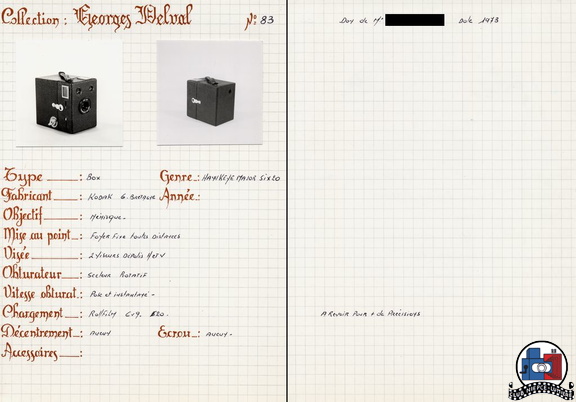 Collection : Georges Delval N°: 83
Type : Box
Genre : HAWKEYE MAJOR Six20
Fabricant : KODAK G. Bretagne
Année :
Objectif : Ménisque -
Mise au point : Foyer Fixe toutes distances
Visée : 2 Viseurs Dépolis H et V
Obturateur : Secteur Rotatif
Vitesse obturat. : Pose et instantané -
Chargement : Rollfilm 6x9. 620.
Décentrement : AUCUN
Ecrou : AUCUN -
Accessoires :
Don de Mr Date 1973
A Revoir Pour + de Précisions